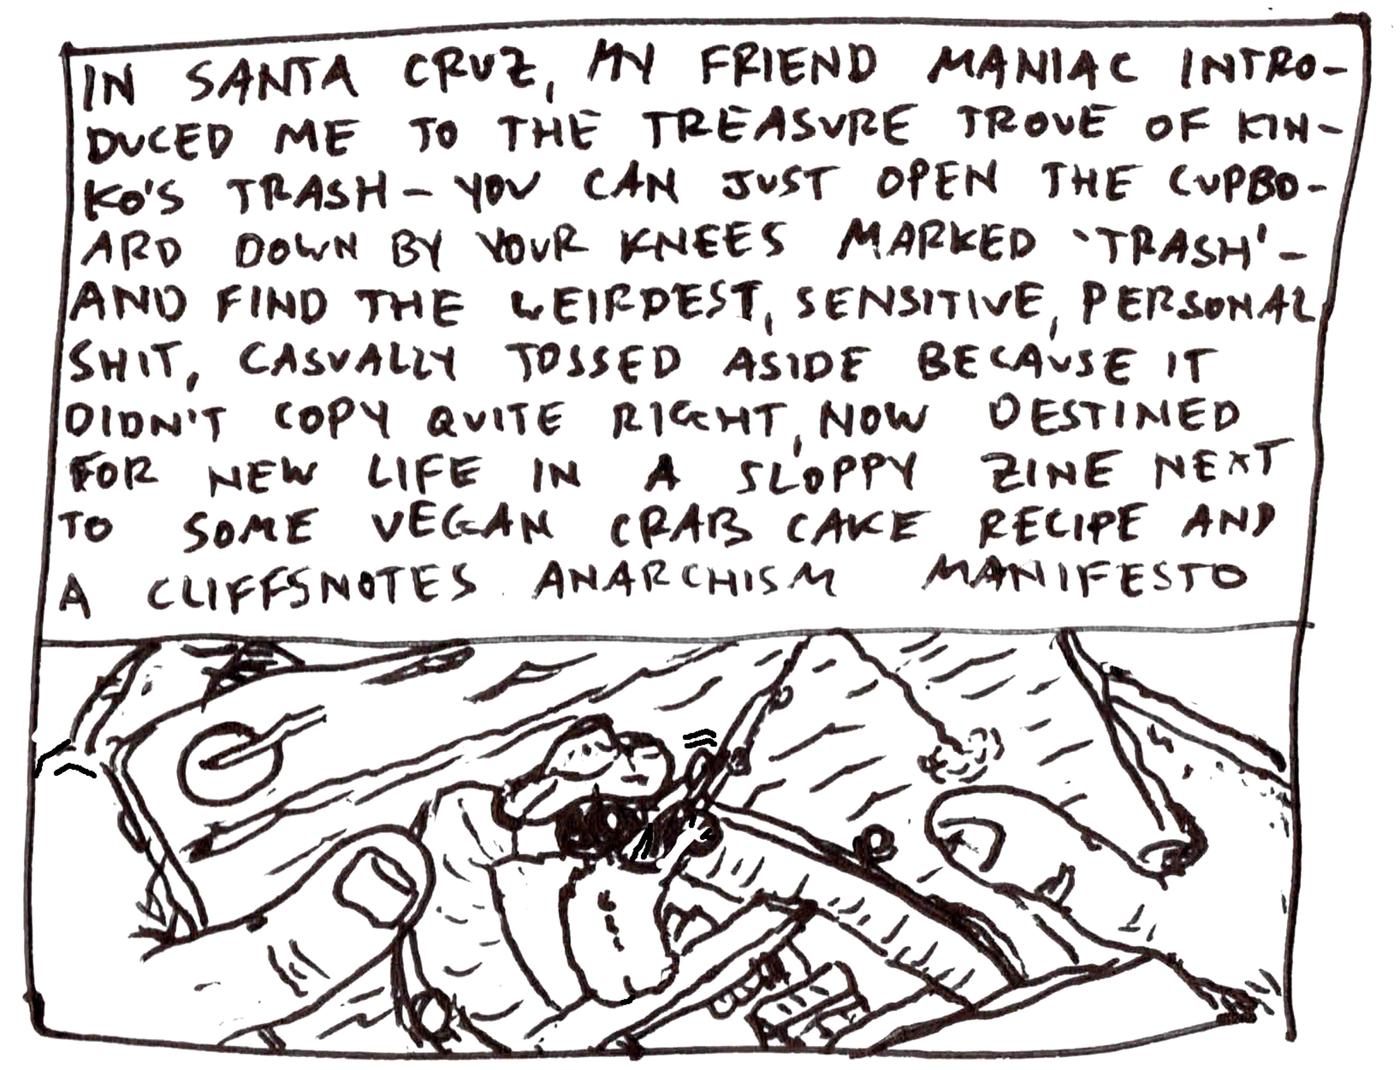 IN SANTA CRUZ, MY FRIEND MANIAC INTRO-
DUCED ME TO THE TREASURE TROVE OF KIN-
KO'S TRASH - YOU CAN JUST OPEN THE CUPBO-
ARD DOWN BY YOUR KNEES MARKED 'TRASH' -
AND FIND THE WEIRDEST, SENSITIVE, PERSONAL
SHIT, CASUALLY TOSSED ASIDE BECAUSE IT
DIDN'T COPY QUITE RIGHT, NOW DESTINED
FOR NEW LIFE IN A SLOPPY ZINE NEXT
TO SOME VEGAN CRAB CAKE RECIPE AND
A CLIFFSNOTES ANARCHISM MANIFESTO